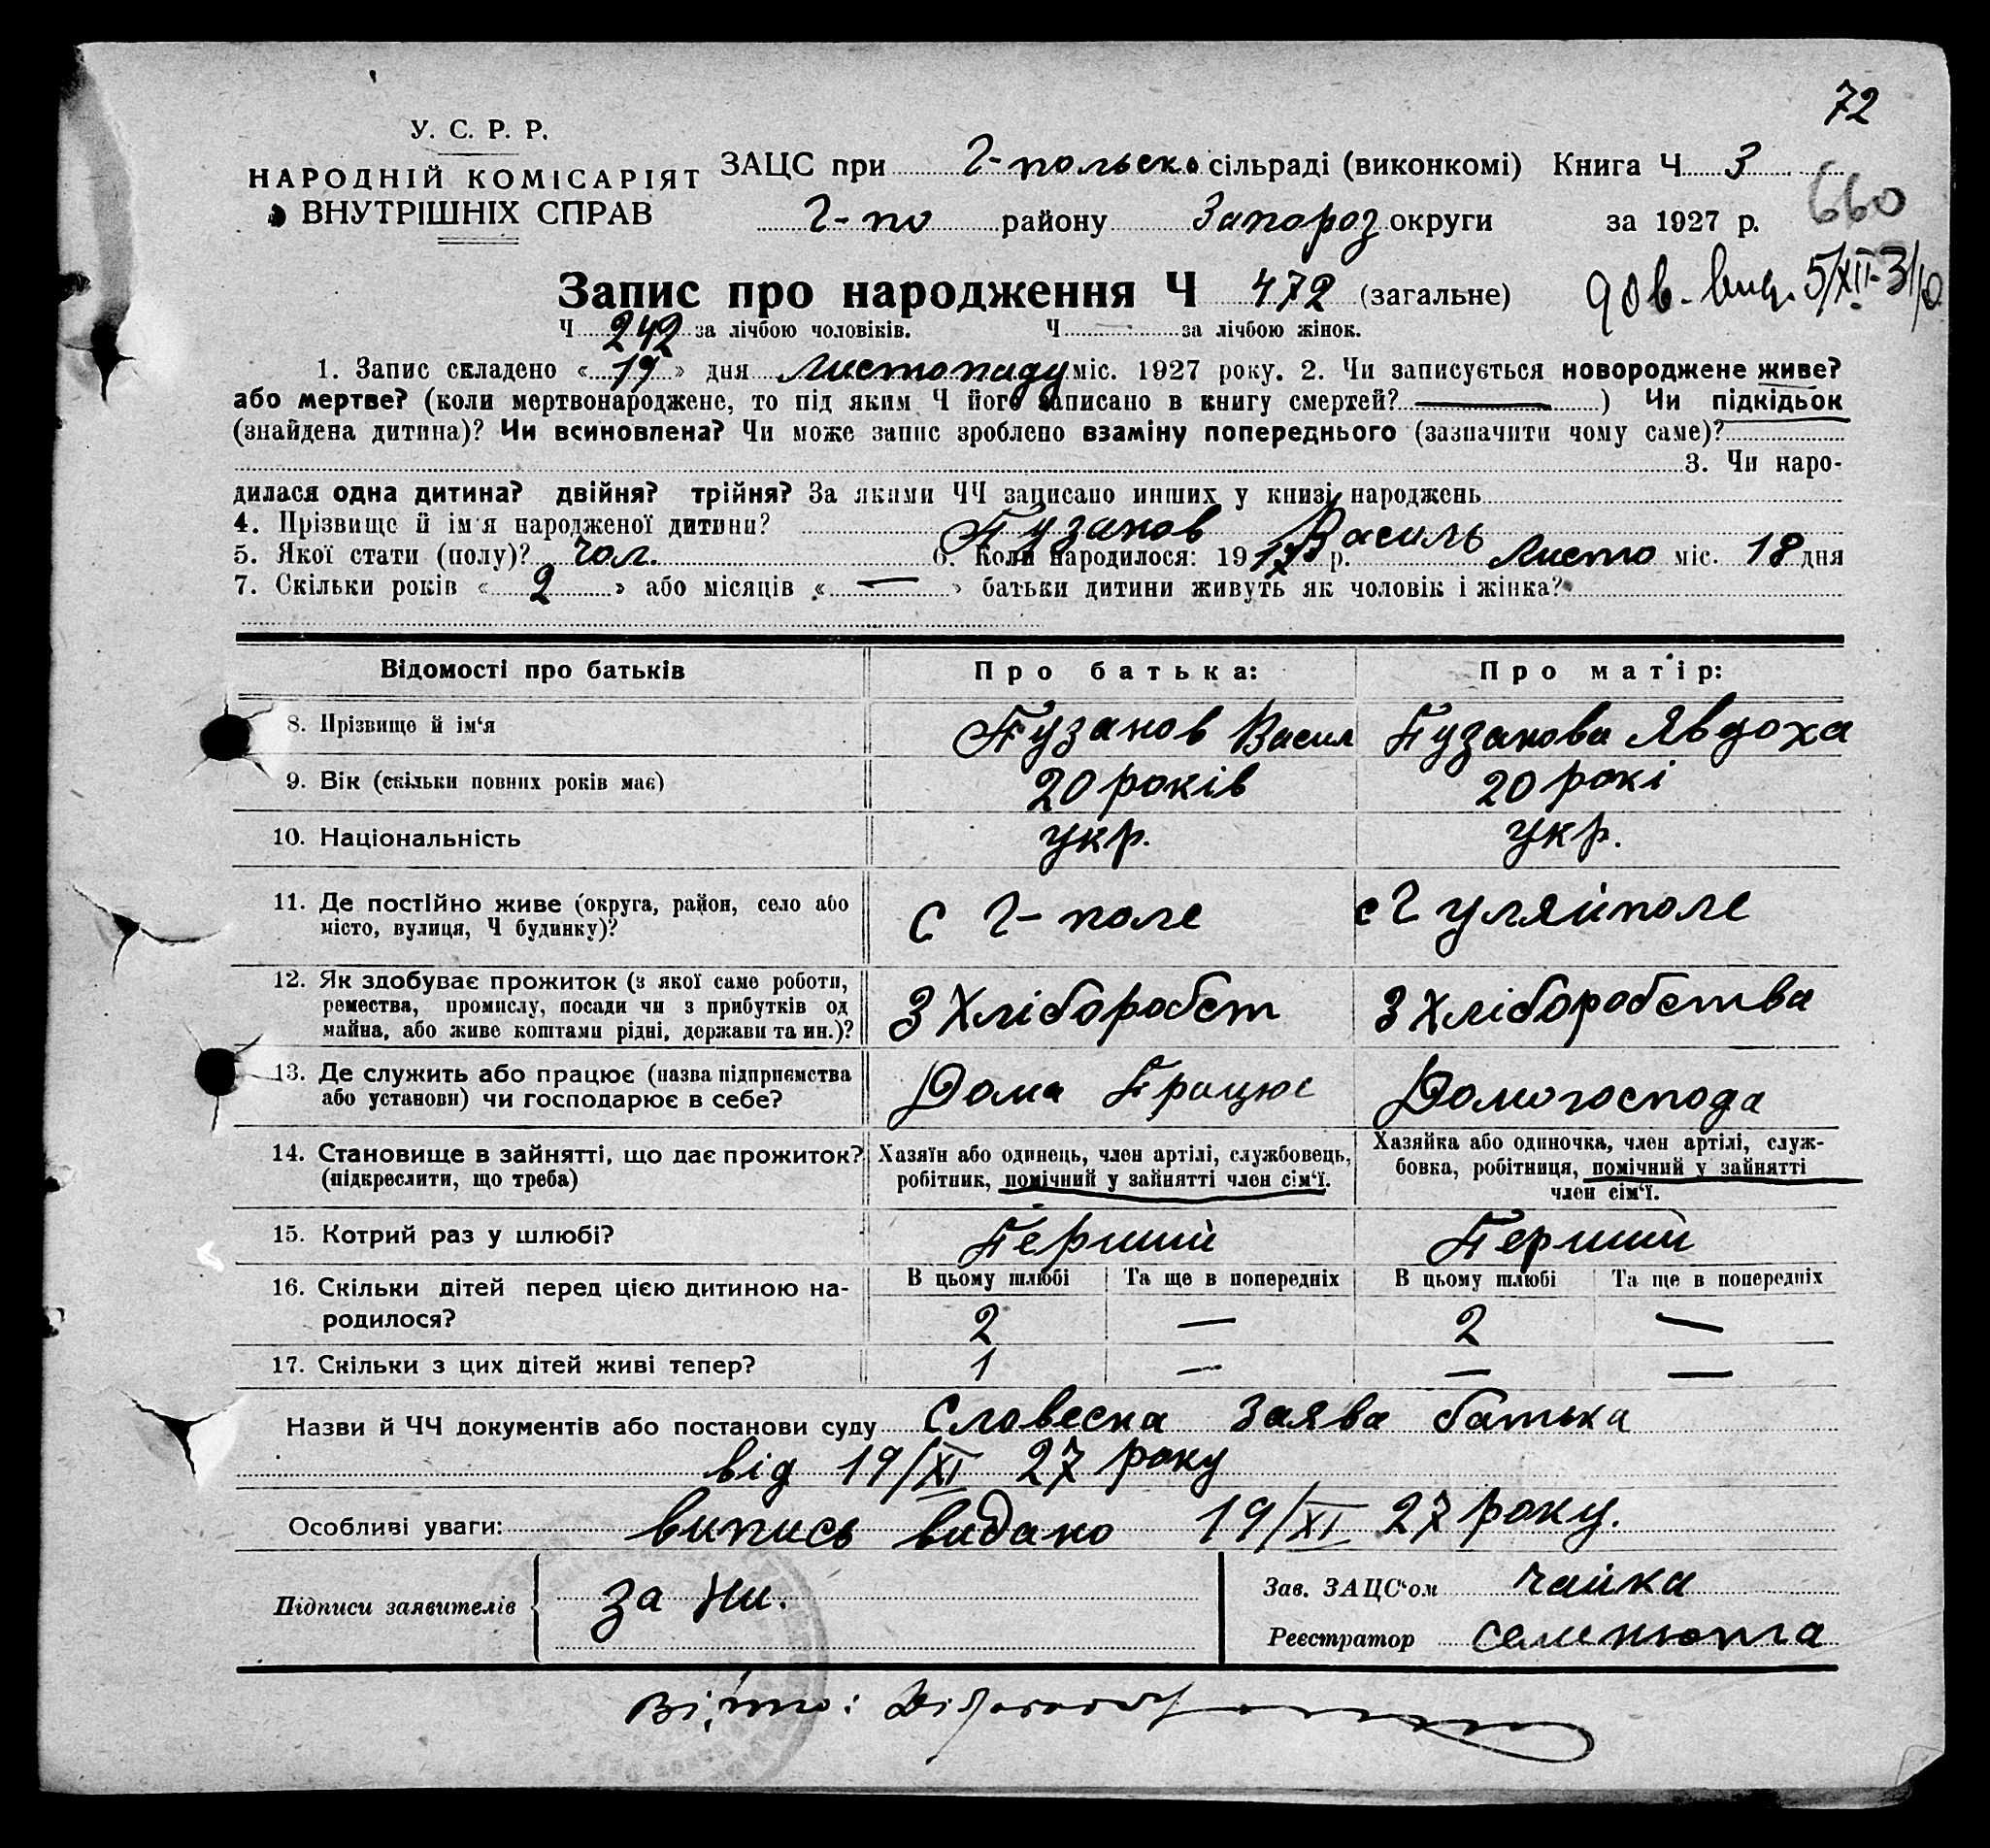 72
У. С. Р. Р.
НАРОДНІЙ КОМІСАРІЯТ
ВНУТРІШНІХ СПРАВ
ЗАЦС при Г-польско сільраді (виконкомі) Книга Ч 3
660
Г-по району Запороз округи за 1927 р.
Запис про народження Ч 472 (загальне)
5/XII-31
Ч 242 за лічбою чоловіків. Ч — за лічбою жінок.
1. Запис складено « 19 » дня Листопаду міс. 1927 року. 2. Чи записується новороджене живе?
або мертве? (коли мертвонароджене, то під яким Ч його записано в книгу смертей? — ) Чи підкідьок
(знайдена дитина)? Чи всиновлена? Чи може запис зроблено взаміну попереднього (зазначити чому саме)?
3. Чи наро-
дилася одна дитина? двійня? трійня? За якими ЧЧ записано инших у книзі народжень
4. Прізвище й ім'я народженої дитини? Пузанов Василь
5. Якої стати (полу)? чол. 6. Коли народилося: 1927 р. Листо міс. 18 дня
7. Скільки років « 2 » або місяців « — » батьки дитини живуть як чоловік і жінка?
Відомості про батьків Про батька: Про матір:
8. Прізвище й ім'я Пузанов Васил Пузанова Явдоха
9. Вік (скільки повних років має) 20 років 20 рокі
10. Національність укр. укр.
11. Де постійно живе (округа, район, село або
місто, вулиця, Ч будинку)? С Г-поле с Гуляйполе
12. Як здобуває прожиток (з якої саме роботи,
ремества, промислу, посади чи з прибутків од
майна, або живе коштами рідні, держави та ин.)? З Хліборобст З Хліборобства
13. Де служить або працює (назва підприємства
або установи) чи господарює в себе? Дома Працює Домогоспода
14. Становище в зайнятті, що дає прожиток?
(підкреслити, що треба)
Хазяїн або одинець, член артілі, службовець,
робітник, помічний у зайнятті член сім'ї.
Хазяйка або одиночка, член артілі, служ-
бовка, робітниця, помічний у зайнятті
член сім'ї.
15. Котрий раз у шлюбі? Перший Перший
16. Скільки дітей перед цією дитиною на-
родилося?
В цьому шлюбі Та ще в попередніх В цьому шлюбі Та ще в попередніх
2 — 2 —
17. Скільки з цих дітей живі тепер? 1 — — —
Назви й ЧЧ документів або постанови суду Словесна заява батька
від 19/XI 27 року
Особливі уваги: випись видано 19/XI 27 року.
Підписи заявителів за
Зав. ЗАЦС'ом Чайка
Реєстратор Семенюта